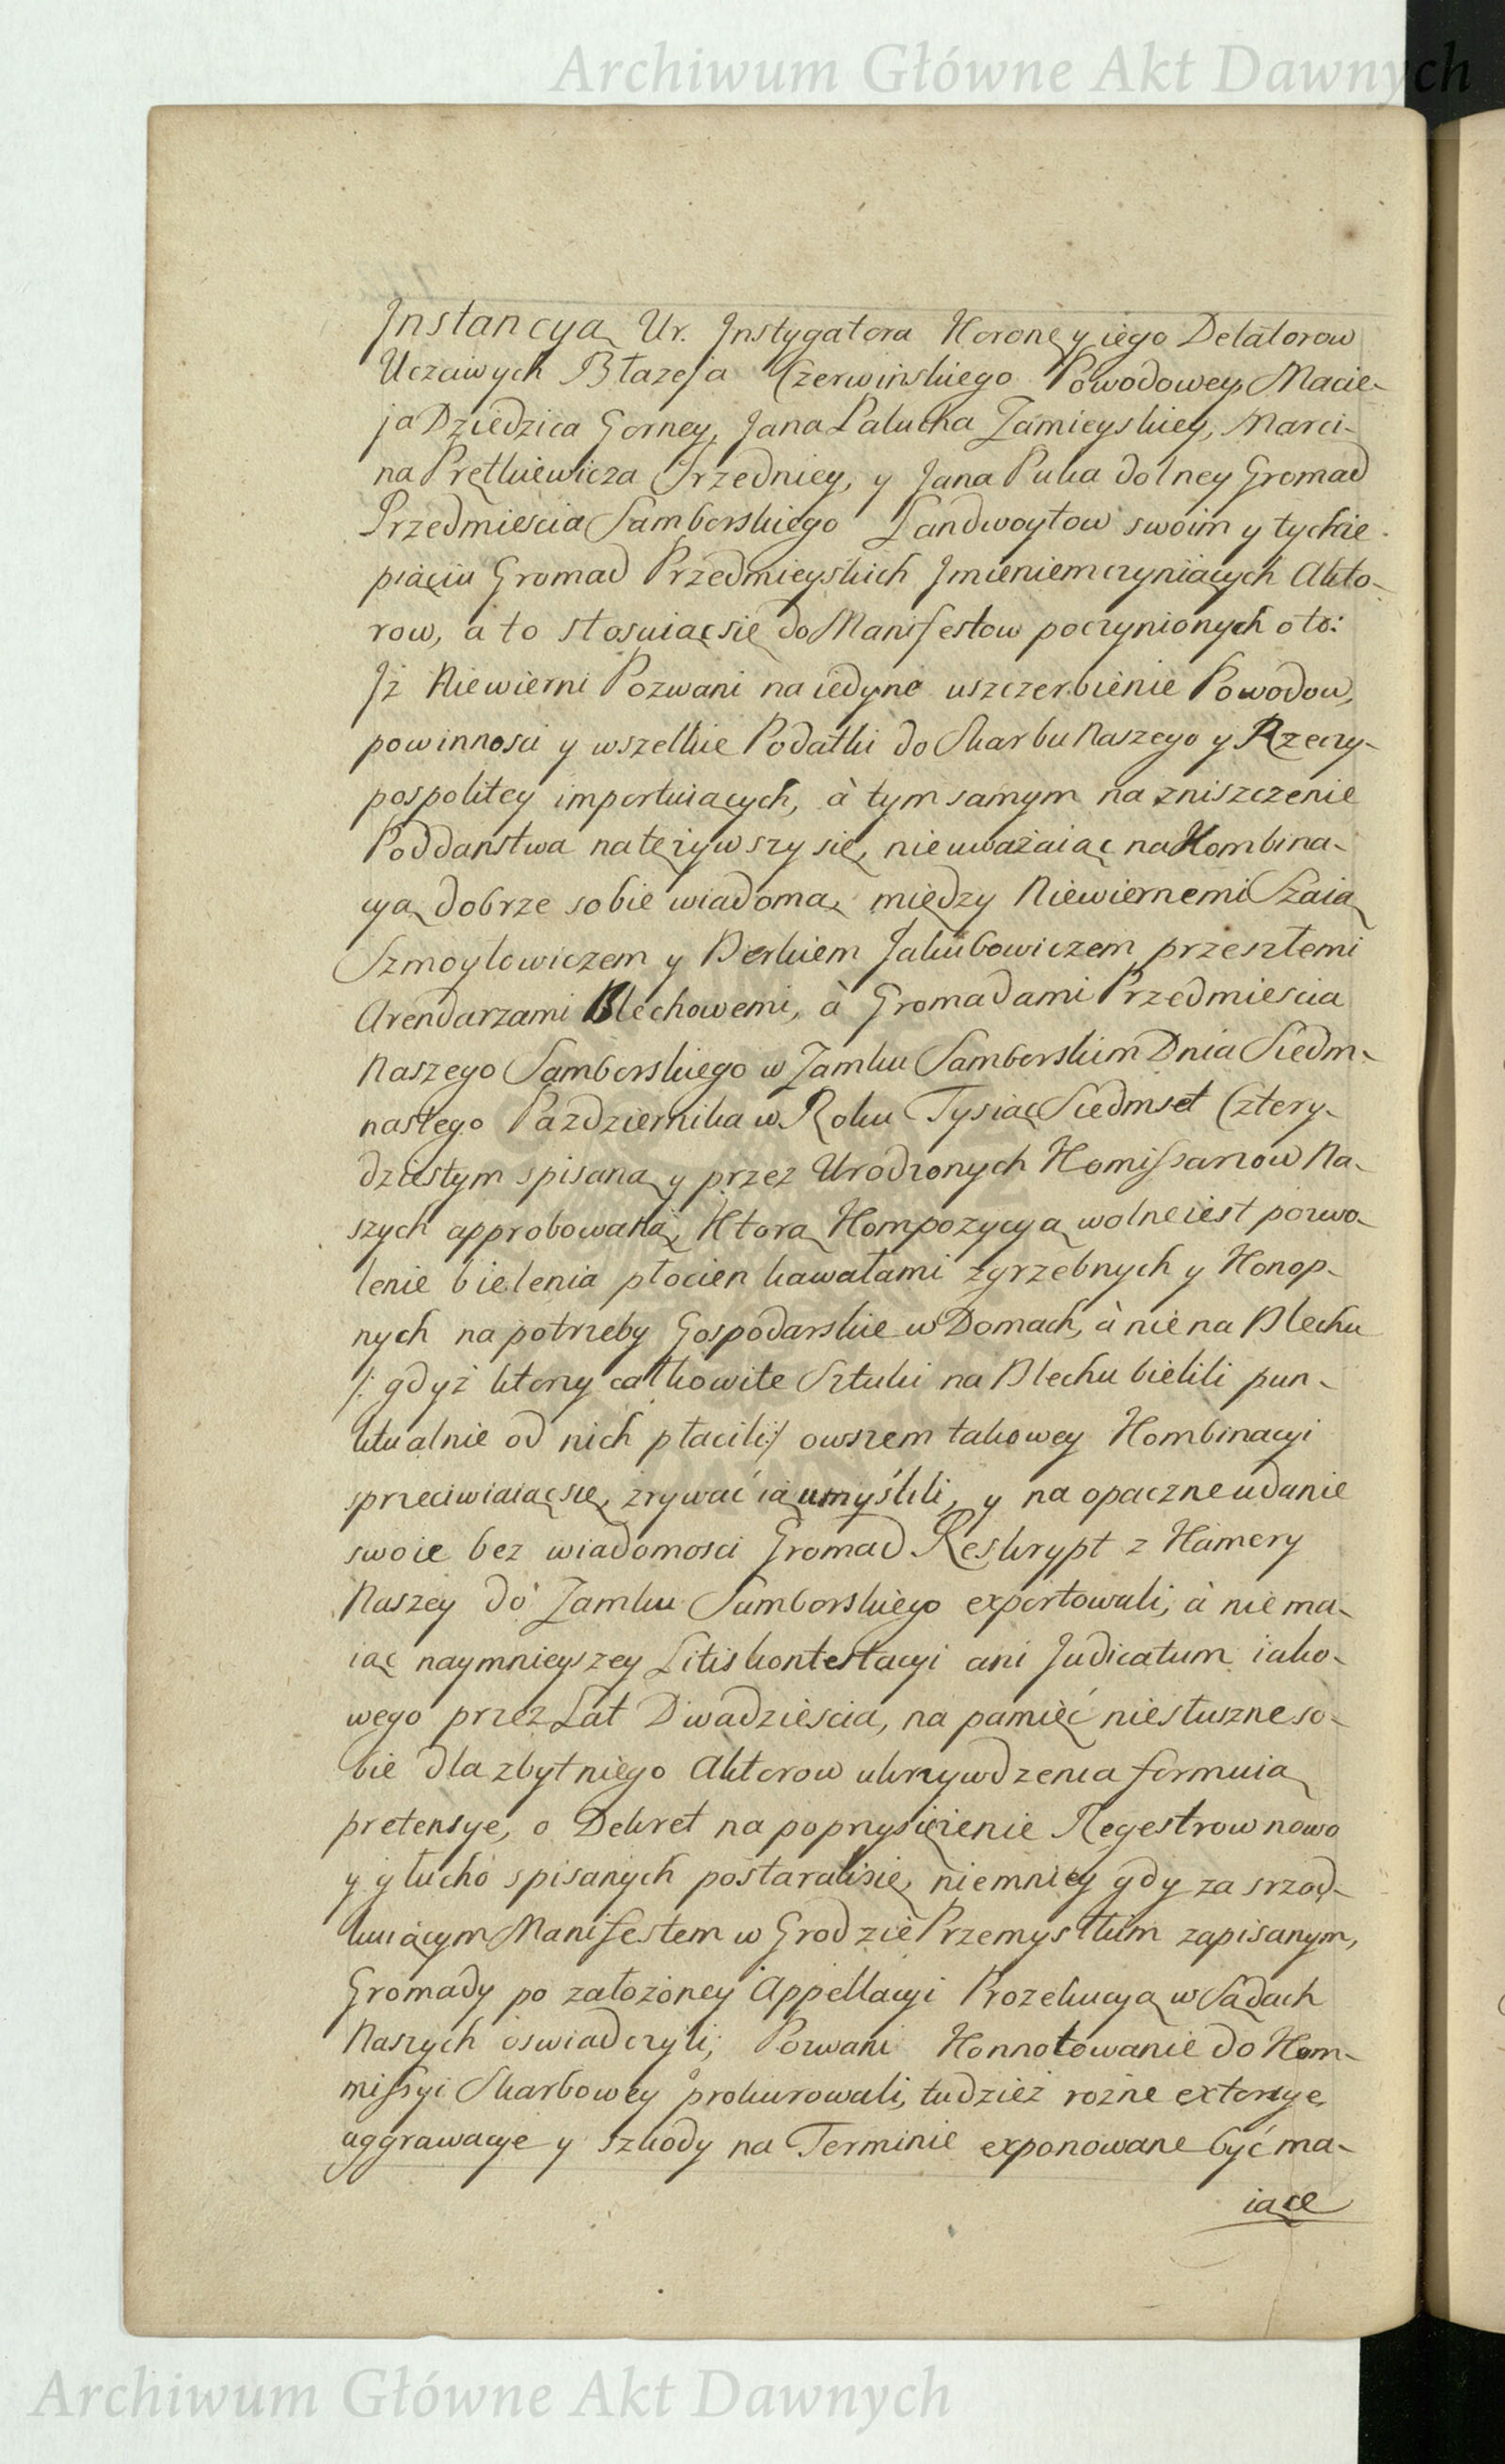 Archiwum Główne Akt Dawnych
Instancyą Ur. Instygatora Koronę y iego Delatorow
Uczciwych Błazeja Czerwinskiego Powodowey, Macie-
ja Dziedzica Gorney, Jana Palucha Zamieyskiey, Marci-
na Prętkiewicza Srzedniey, y Jana Puka dolney Gromad
Przedmiescia Samborskiego Landwoytow swoim y tychże
piąciu Gromad Przedmieyskich Imieniem czyniących Akto-
row, a to stosuiąc się do Manifestow poczynionych o to:
Iż Niewierni Pozwani na iedyne uszczerbienie Powodow,
powinnosci y wszelkie Podatki do Skarbu Naszego y Rzeczy-
pospolitey importuiących, à tym samym na zniszczenie
Poddanstwa natężywszy się, nieuważaiąc na Kombina-
cyą dobrze sobie wiadomą, między Niewiernemi Szaią
Szmoylowiczem y Berkiem Jakubowiczem przeszłemi
Arendarzami Blechowemi, à Gromadami Przedmiescia
Naszego Samborskiego w Zamku Samborskim Dnia Siedm-
nastego Pazdziernika w Roku Tysiąc Siedmset Cztery-
dziestym spisaną y przez Urodzonych Komissarzow Na-
szych approbowaną, Ktorą Kompozycyą wolne iest pozwo-
lenie bielenia płocien kawałami zgrzebnych y Konop-
nych na potrzeby Gospodarskie w Domach, à nie na Blechu
/: gdyż ktorzy całkowite Sztuki na Blechu bielili pun-
ktualnie od nich płacili:/ owszem takowey Kombinacyi
sprzeciwiaiąc się, zrywać ią umyślili, y na opaczne udanie
swoie bez wiadomosci Gromad Reskrypt z Kamery
Naszey do Zamku Samborskiego exportowali, à nie ma-
iąc naymnieyszey Litiskontestacyi ani Judicatum iako-
wego przez Lat Dwadziescia, na pamięć niesłuszne so-
bie dla zbytniego Aktorow ukrzywdzenia formuią
pretensye, o Dekret na poprzysiężenie Regestrow nowo
y głucho spisanych postarali się, niemniey gdy za srzod-
kuiącym Manifestem w Grodzie Przemyslkim zapisanym,
Gromady po założoney Appellacyi Prozekucyą w Sądach
Naszych oswiadczyli; Pozwani Konnotowanie do Kom-
missyi Skarbowey prokurowali, tudzież rożne extorsye,
aggrawacye y szkody na Terminie exponowane być ma-
iące
Archiwum Główne Akt Dawnych